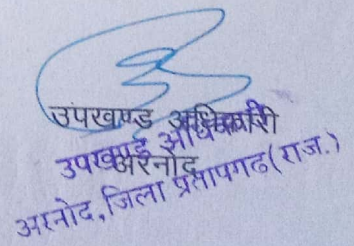 उपखण्ड अधिकारी
अरनोद
उपखण्ड अधिकारी
अरनोद, जिला प्रतापगढ (राज.)